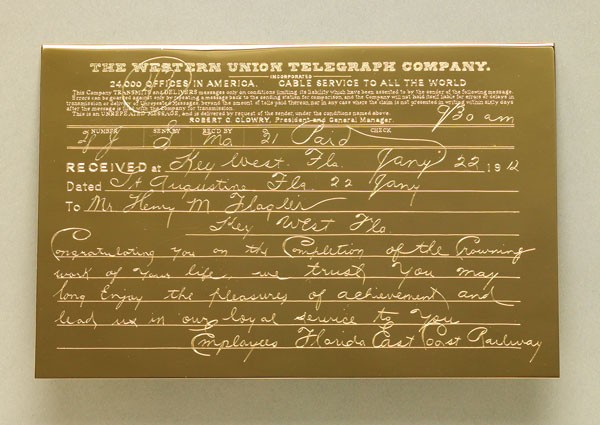 THE WESTERN UNION TELEGRAPH COMPANY.
INCORPORATED
24,000 OFFICES IN AMERICA. CABLE SERVICE TO ALL THE WORLD
This Company TRANSMITS and DELIVERS messages only on conditions limiting its liability which have been assented to by the sender of the following message.
Errors can be guarded against only by repeating a message back to the sending station for comparison, and the Company will not hold itself liable for errors or delays in
transmission or delivery of Unrepeated Messages, beyond the amount of tolls paid thereon, nor in any case where the claim is not presented in writing within sixty days
after the message is filed with the Company for transmission.
This is an UNREPEATED MESSAGE, and is delivered by request of the sender, under the conditions named above.
ROBERT C. CLOWRY, President and General Manager
930 am
NUMBER SENT BY REC'D BY CHECK
Ma 21 Paid
RECEIVED at Key West. Fla Jany 22 1912
Dated St Augustine Fla 22 Jany
To Mr Henry M Flagler
Key West Fla
Congratulating you on the Completion of the Crowning
work of your life we trust you may
long Enjoy the pleasures of achievement and
lead us in our loyal service to you
Employees Florida East Coast Railway